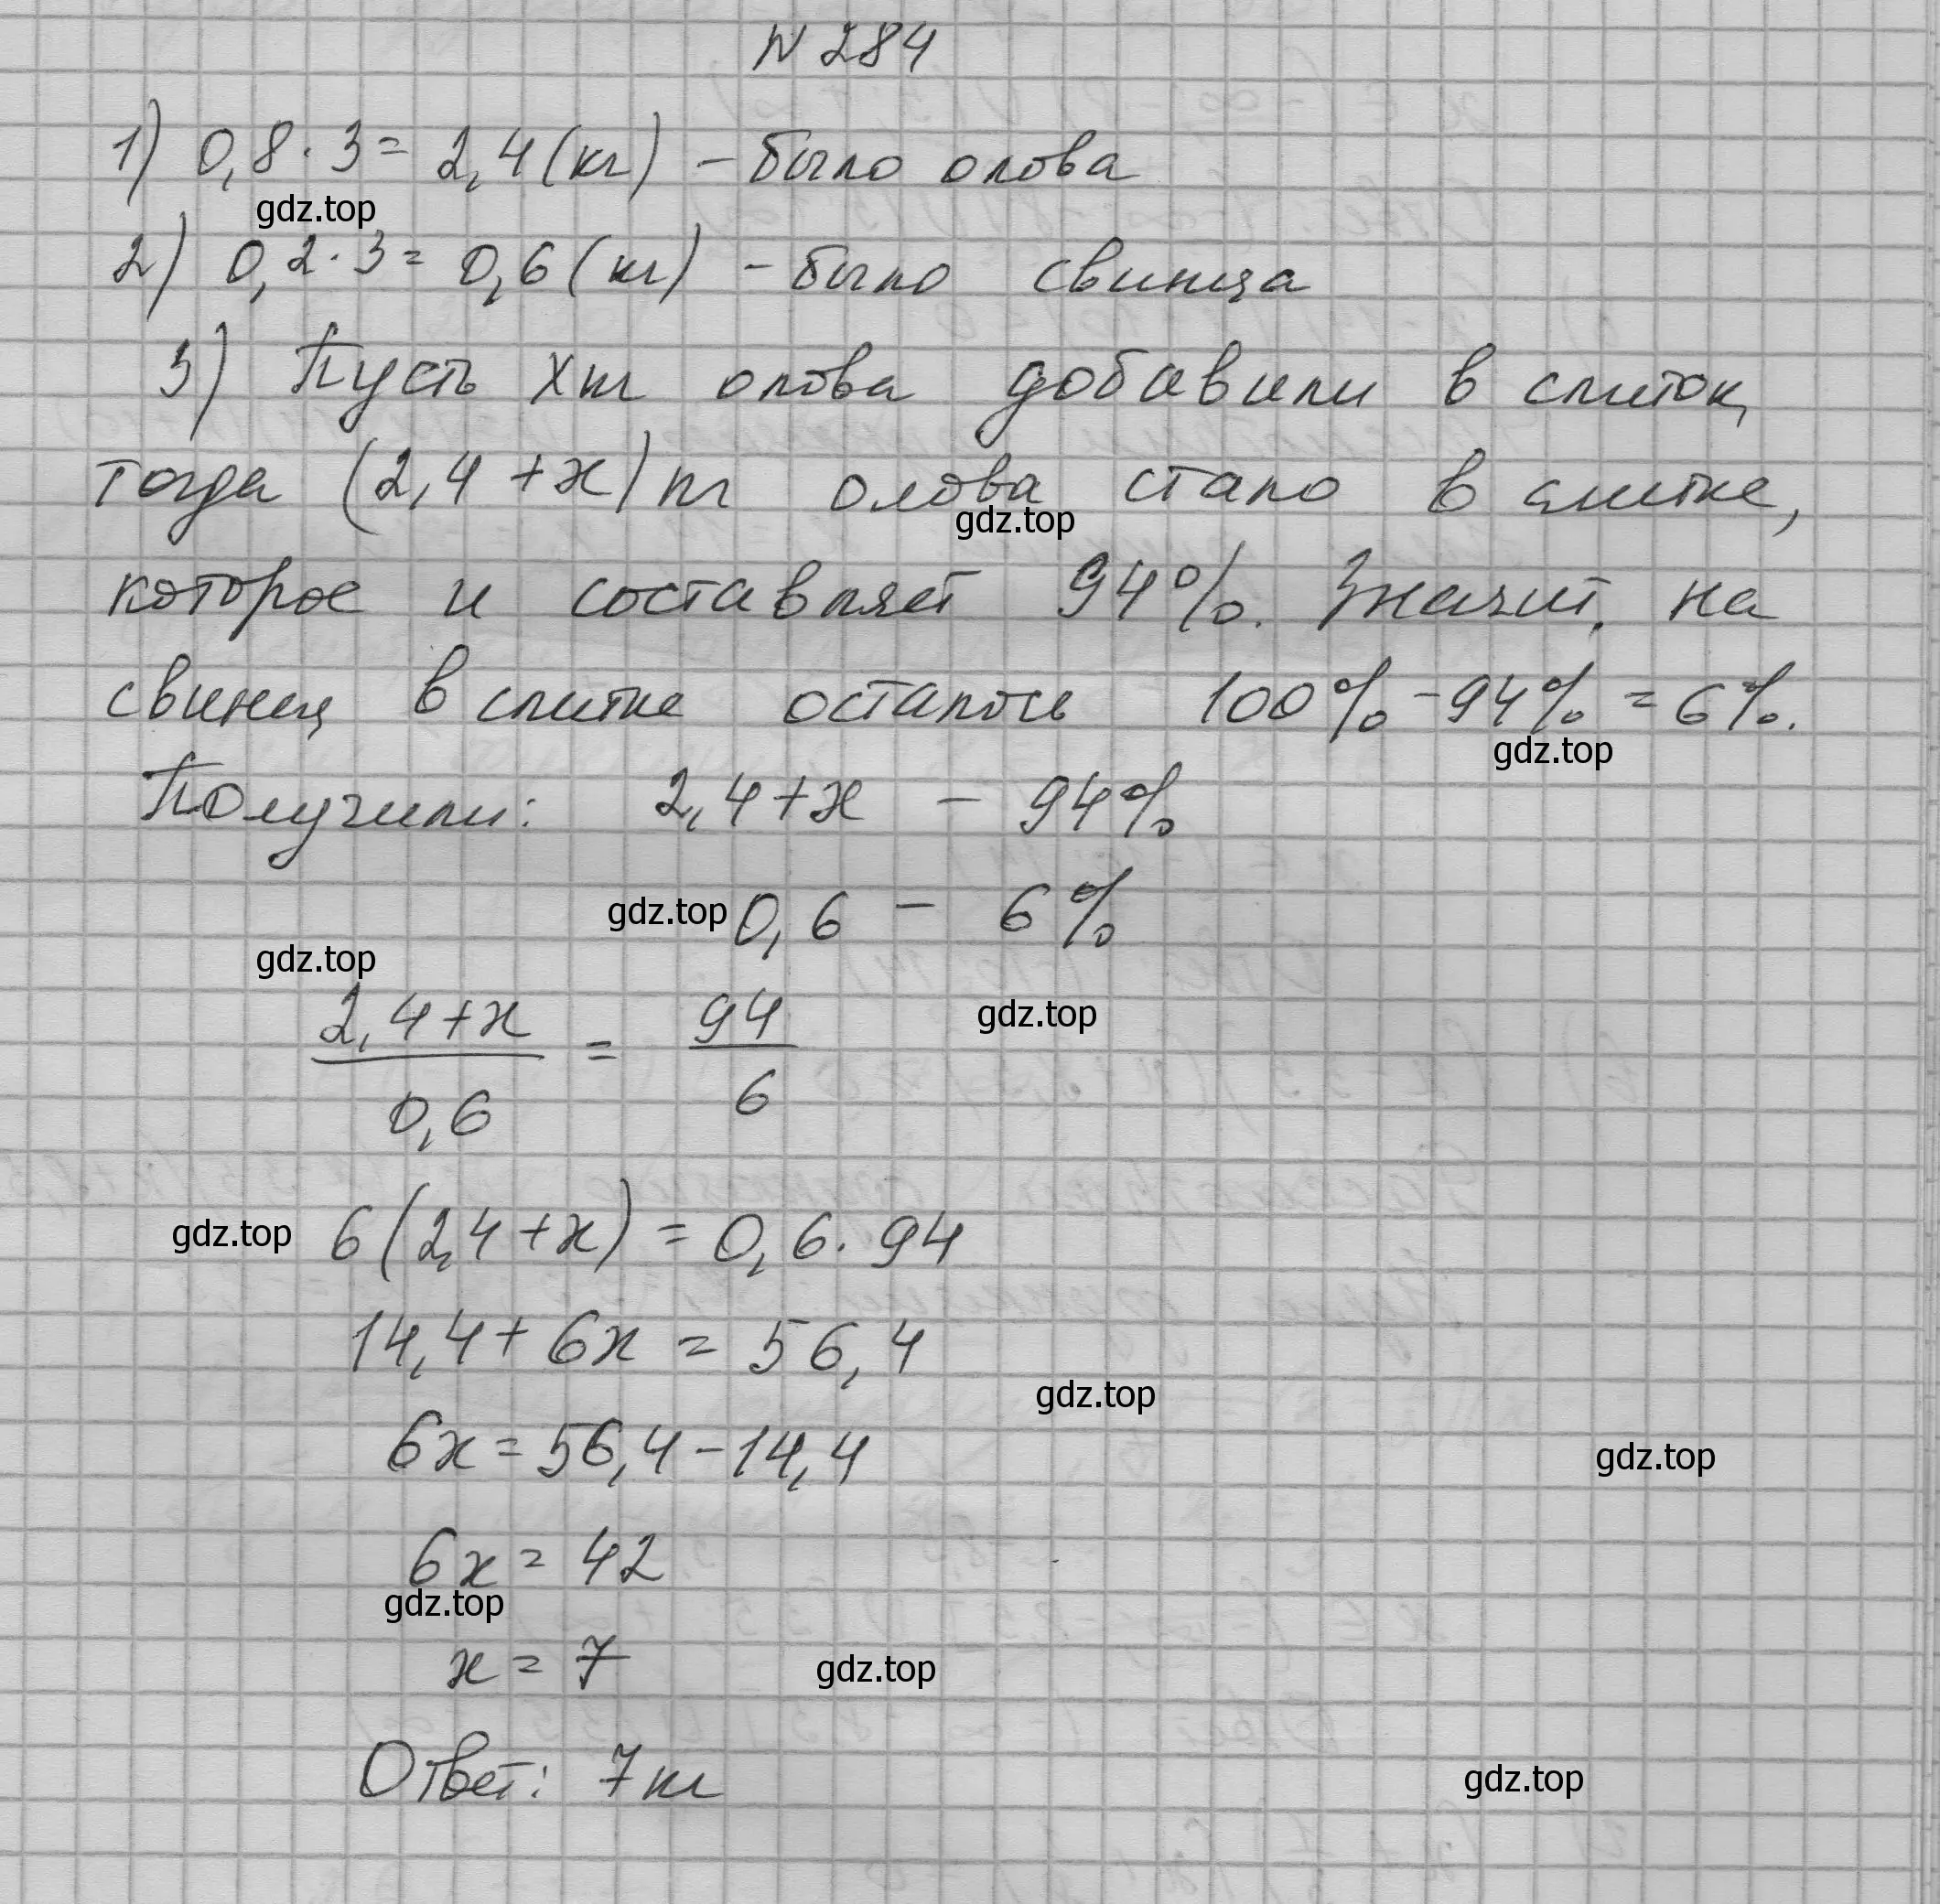 N 284
1) 0,8 · 3 = 2,4 (кг) - было олова
gdz.top
2) 0,2 · 3 = 0,6 (кг) - было свинца
3) Пусть x кг олова добавили в слиток,
тогда (2,4 + x) кг олова стало в слитке,
gdz.top
которое и составляет 94%. Значит, на
свинец в слитке осталось 100% - 94% = 6%.
gdz.top
Получили: 2,4 + x - 94%
gdz.top 0,6 - 6%
gdz.top
2,4 + x / 0,6 = 94 / 6
gdz.top
gdz.top 6 (2,4 + x) = 0,6 · 94
14,4 + 6x = 56,4
gdz.top
6x = 56,4 - 14,4
gdz.top
6x = 42
gdz.top
x = 7 gdz.top
Ответ: 7 кг gdz.top